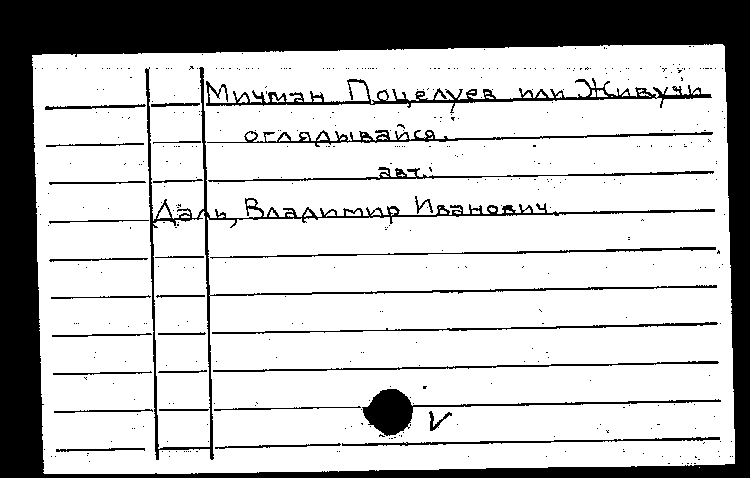 Мичман Поцелуев или Живучи
оглядывайся.
авт.:
Даль, Владимир Иванович.
V